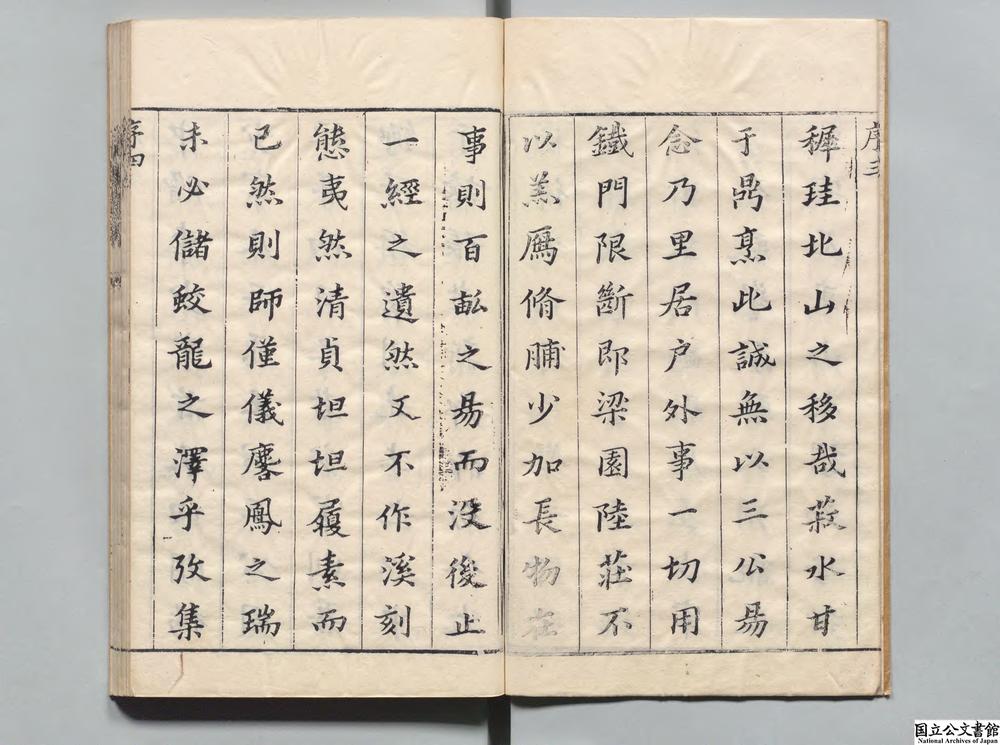 序三
穉珪北山之移哉菽水甘
于鼎烹此誠無以三公昜
念乃里居户外事一切用
鐵門限斷即梁園陸莊不
以羔鴈脩脯少加長物在
事則百畆之昜而没後止
一經之遺然又不作溪刻
態夷然清貞坦坦履素而
已然則師僅儀麐鳳之瑞
未必儲蛟龍之澤乎攷集
序四
国立公文書館
National Archives of Japan